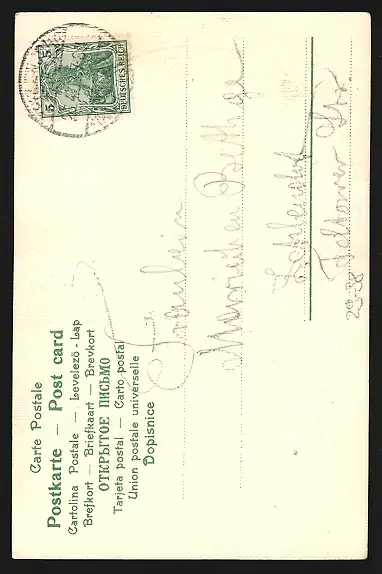 Carte Postale
Postkarte — Post card
Cartolina Postale — Levelező-Lap
Brefkort — Briefkaart — Brevkort
ОТКРЫТОЕ ПИСЬМО
Tarjeta postal — Carto postal
Union postale universelle
Dopisnice
5 5
DEUTSCHES REICH
Fräulein
Mariechen Bethge
Zehlendorf
Teltower Str.